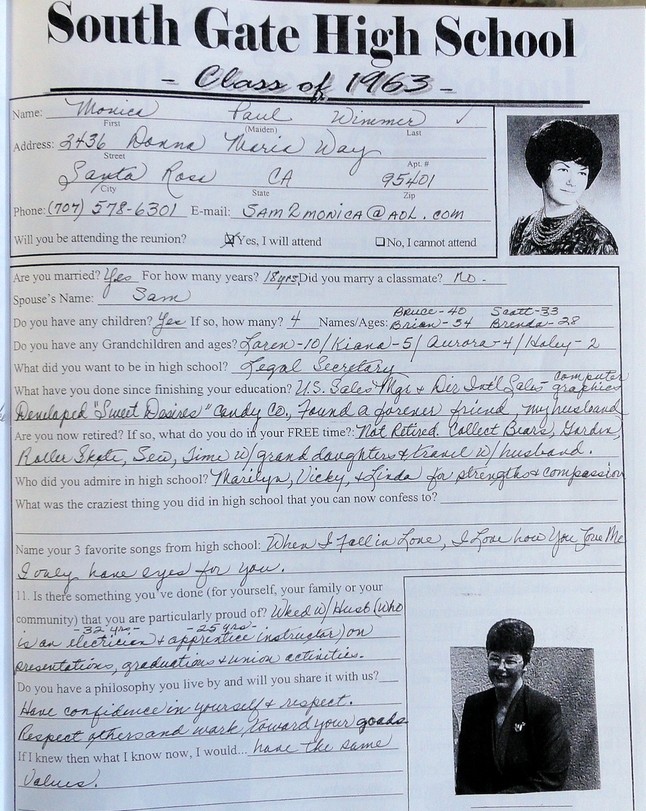 South Gate High School
- Class of 1963 -
Name: Monica Paul Wimmer ✓
First (Maiden) Last
Address: 2436 Donna Maria Way
Street Apt. #
Santa Rosa CA 95401
City State Zip
Phone: (707) 578-6301 E-mail: SAM2MONICA@AOL.COM
Will you be attending the reunion? ☑Yes, I will attend ☐No, I cannot attend
Are you married? Yes For how many years? 18yrs Did you marry a classmate? No.
Spouse's Name: Sam
Bruce-40 Scott-33
Do you have any children? Yes If so, how many? 4 Names/Ages: Brian-34 Brenda-28
Do you have any Grandchildren and ages? Loren-10/Kiana-5/Aurora-4/Haley-2
What did you want to be in high school? Legal Secretary
What have you done since finishing your education? U.S. Sales Mgr & Dir Int'l Sales - computer graphics
Developed "Sweet Desires" Candy Co., Found a forever friend, my husband
Are you now retired? If so, what do you do in your FREE time?: Not Retired. Collect Bears, Garden,
Roller Skate, Sew, Time w/grand daughters & travel w/husband.
Who did you admire in high school? Marilyn, Vicky, & Linda for strength & compassion
What was the craziest thing you did in high school that you can now confess to?
Name your 3 favorite songs from high school: When I Fall in Love, I Love how You Love Me
I only have eyes for you.
11. Is there something you've done (for yourself, your family or your
community) that you are particularly proud of? Wked w/Husb (who
-32 yrs- -25 yrs-
is an electrician & apprentice instructor) on
presentations, graduations & union activities.
Do you have a philosophy you live by and will you share it with us?
Have confidence in yourself & respect.
Respect others and work toward your goals
If I knew then what I know now, I would... have the same
values.